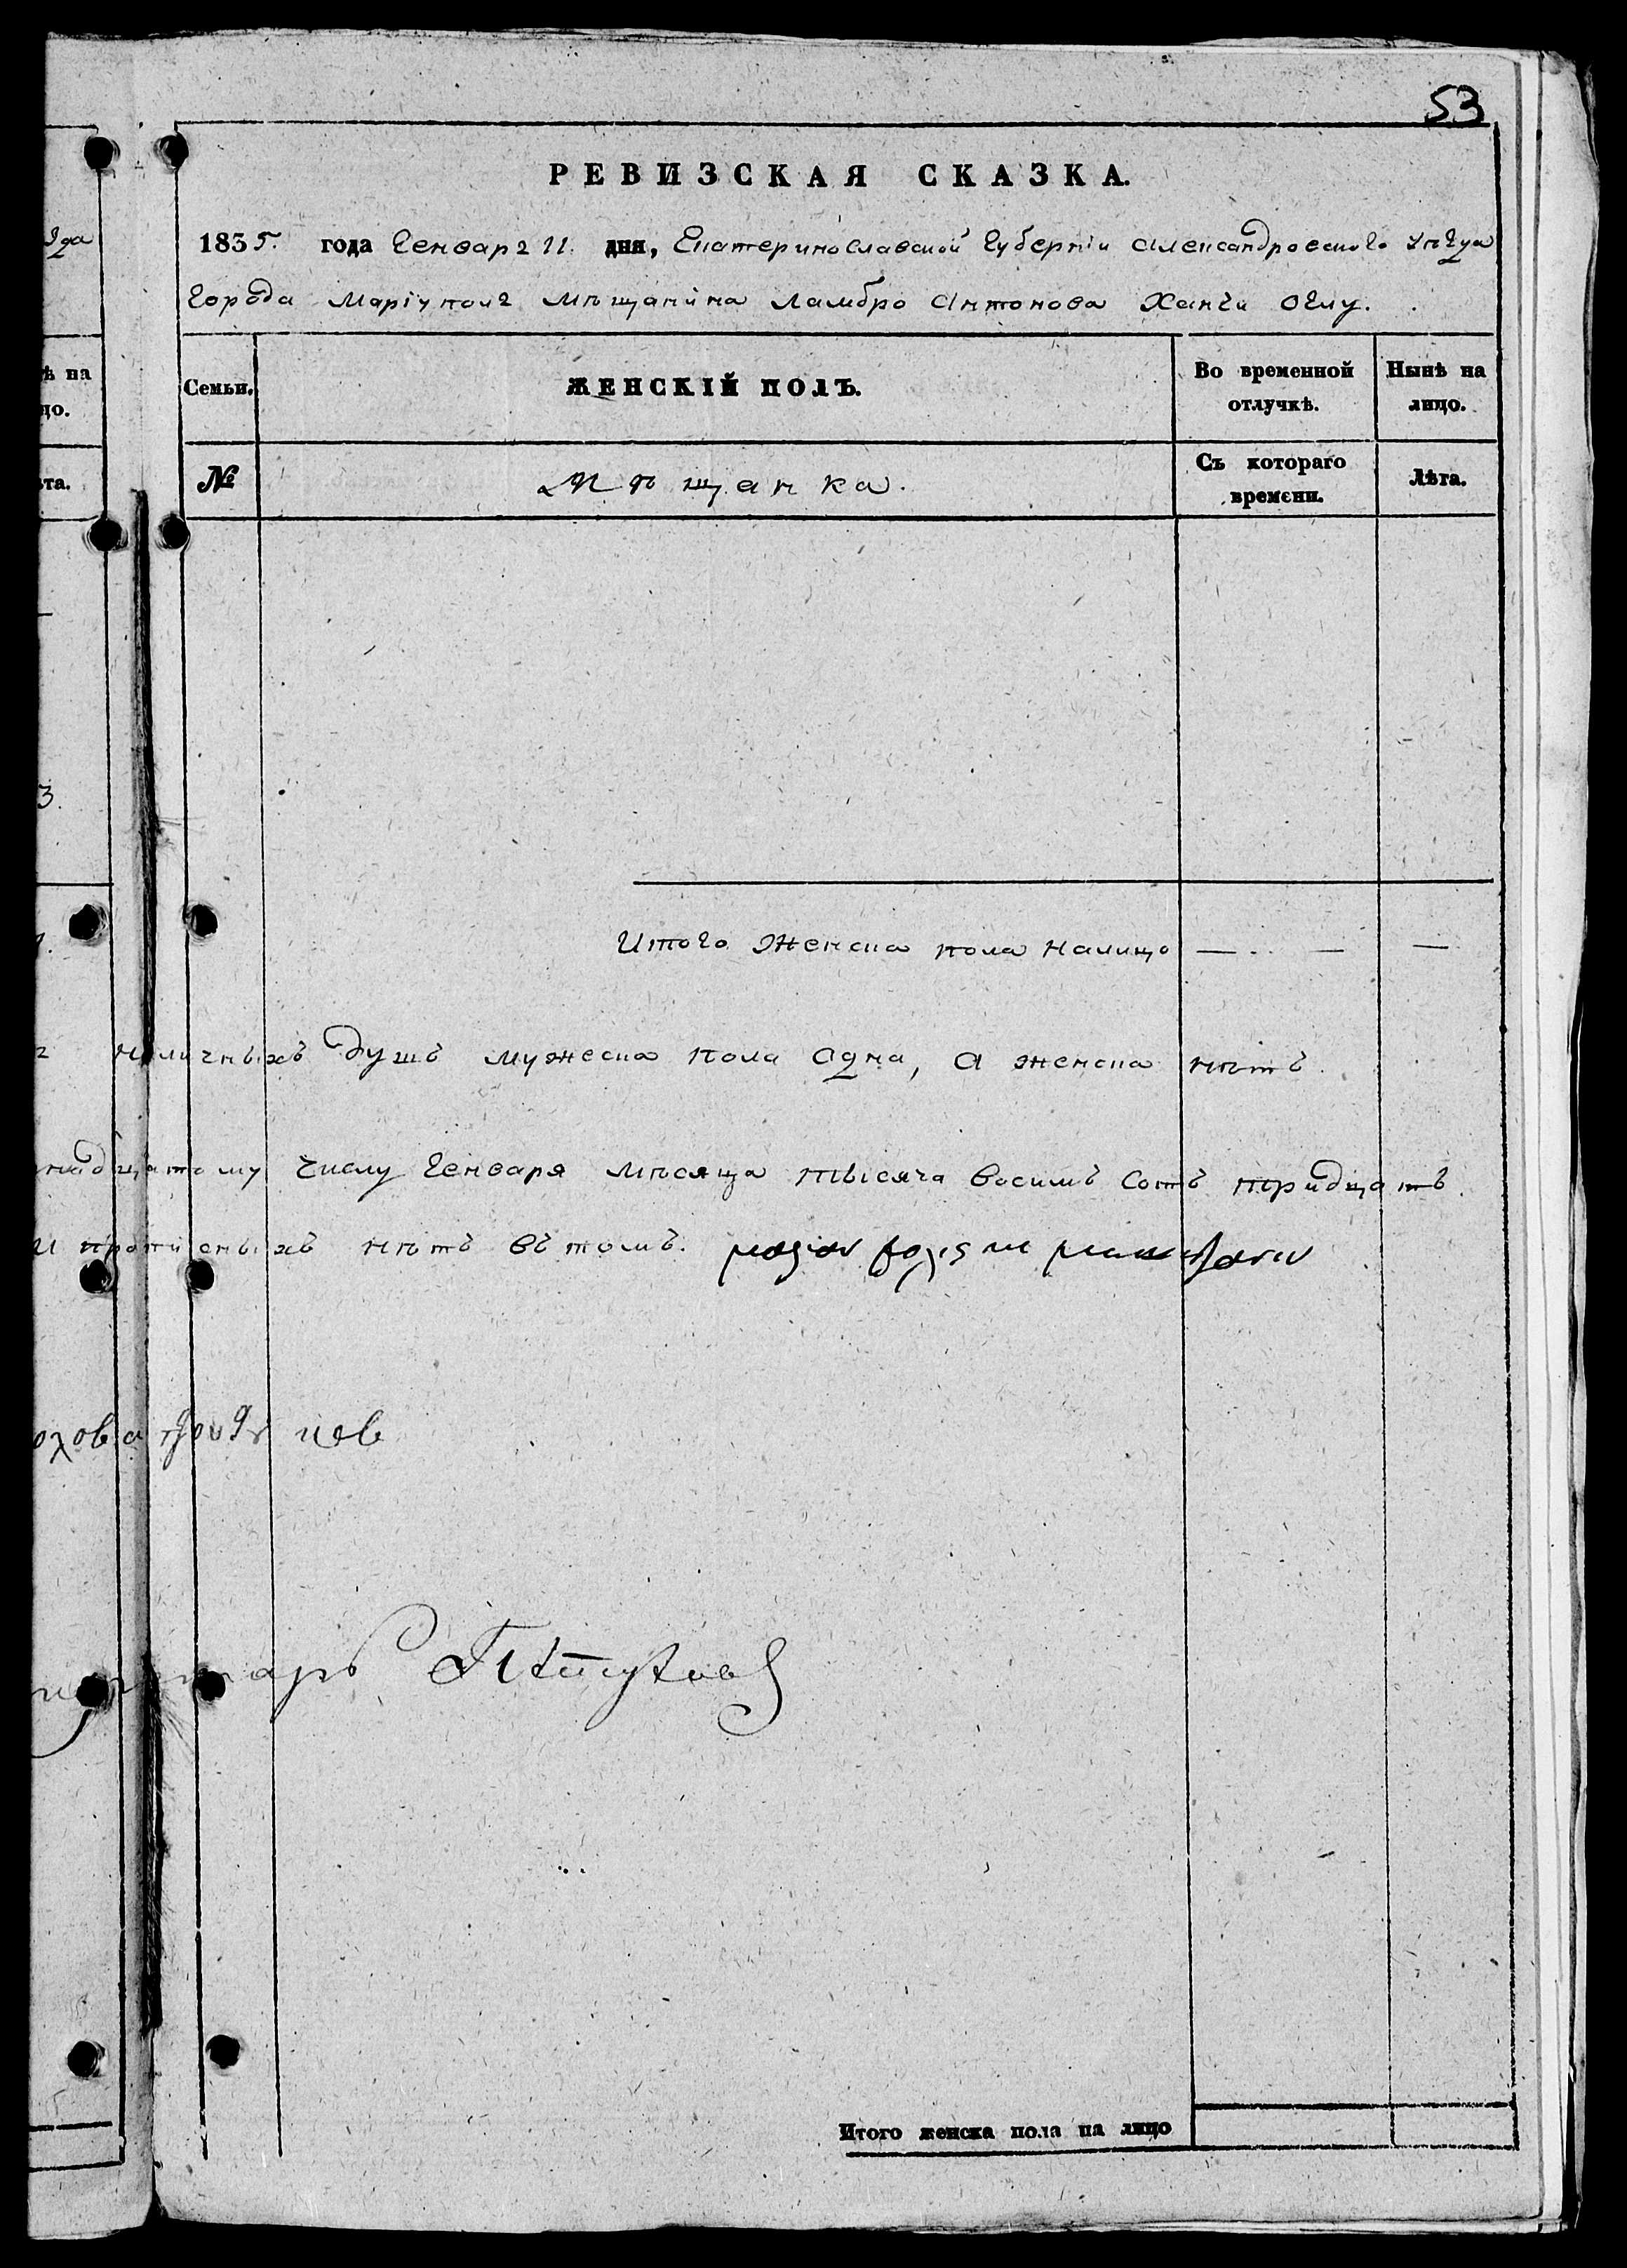 53
РЕВИЗСКАЯ СКАЗКА.
1835. года Генваря 11. дня, Екатеринославской Губерніи Александровского уѣзда
Города Маріуполя мѣщанина Ламбро Антонова Ханги Оглу.
Семьи.
ЖЕНСКІЙ ПОЛЪ.
Во временной отлучкѣ.
Нынѣ на лицо.
№
Мѣщанка.
Съ котораго времени.
Лѣта.
Итого женска пола налицо — — —
наличныхъ душъ мужеска пола одна, а женска нѣтъ.
надцатому числу Генваря мѣсяца тысяча восимъ сотъ тридцать
и прописныхъ нѣтъ въ томъ.
Итого женска пола на лицо